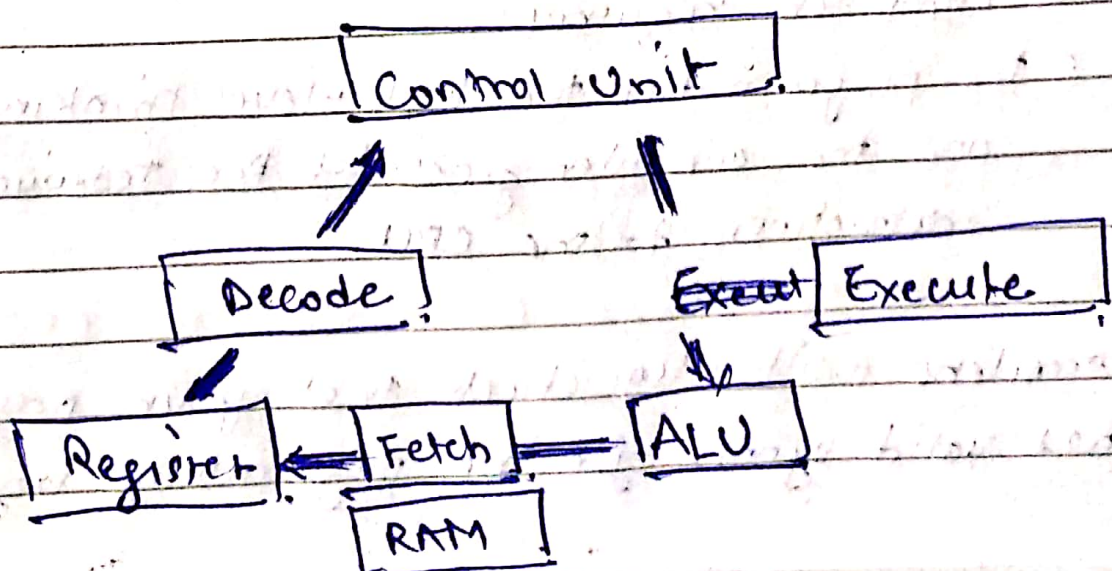 Control Unit
Decode
Execut Execute
Register Fetch ALU
RAM